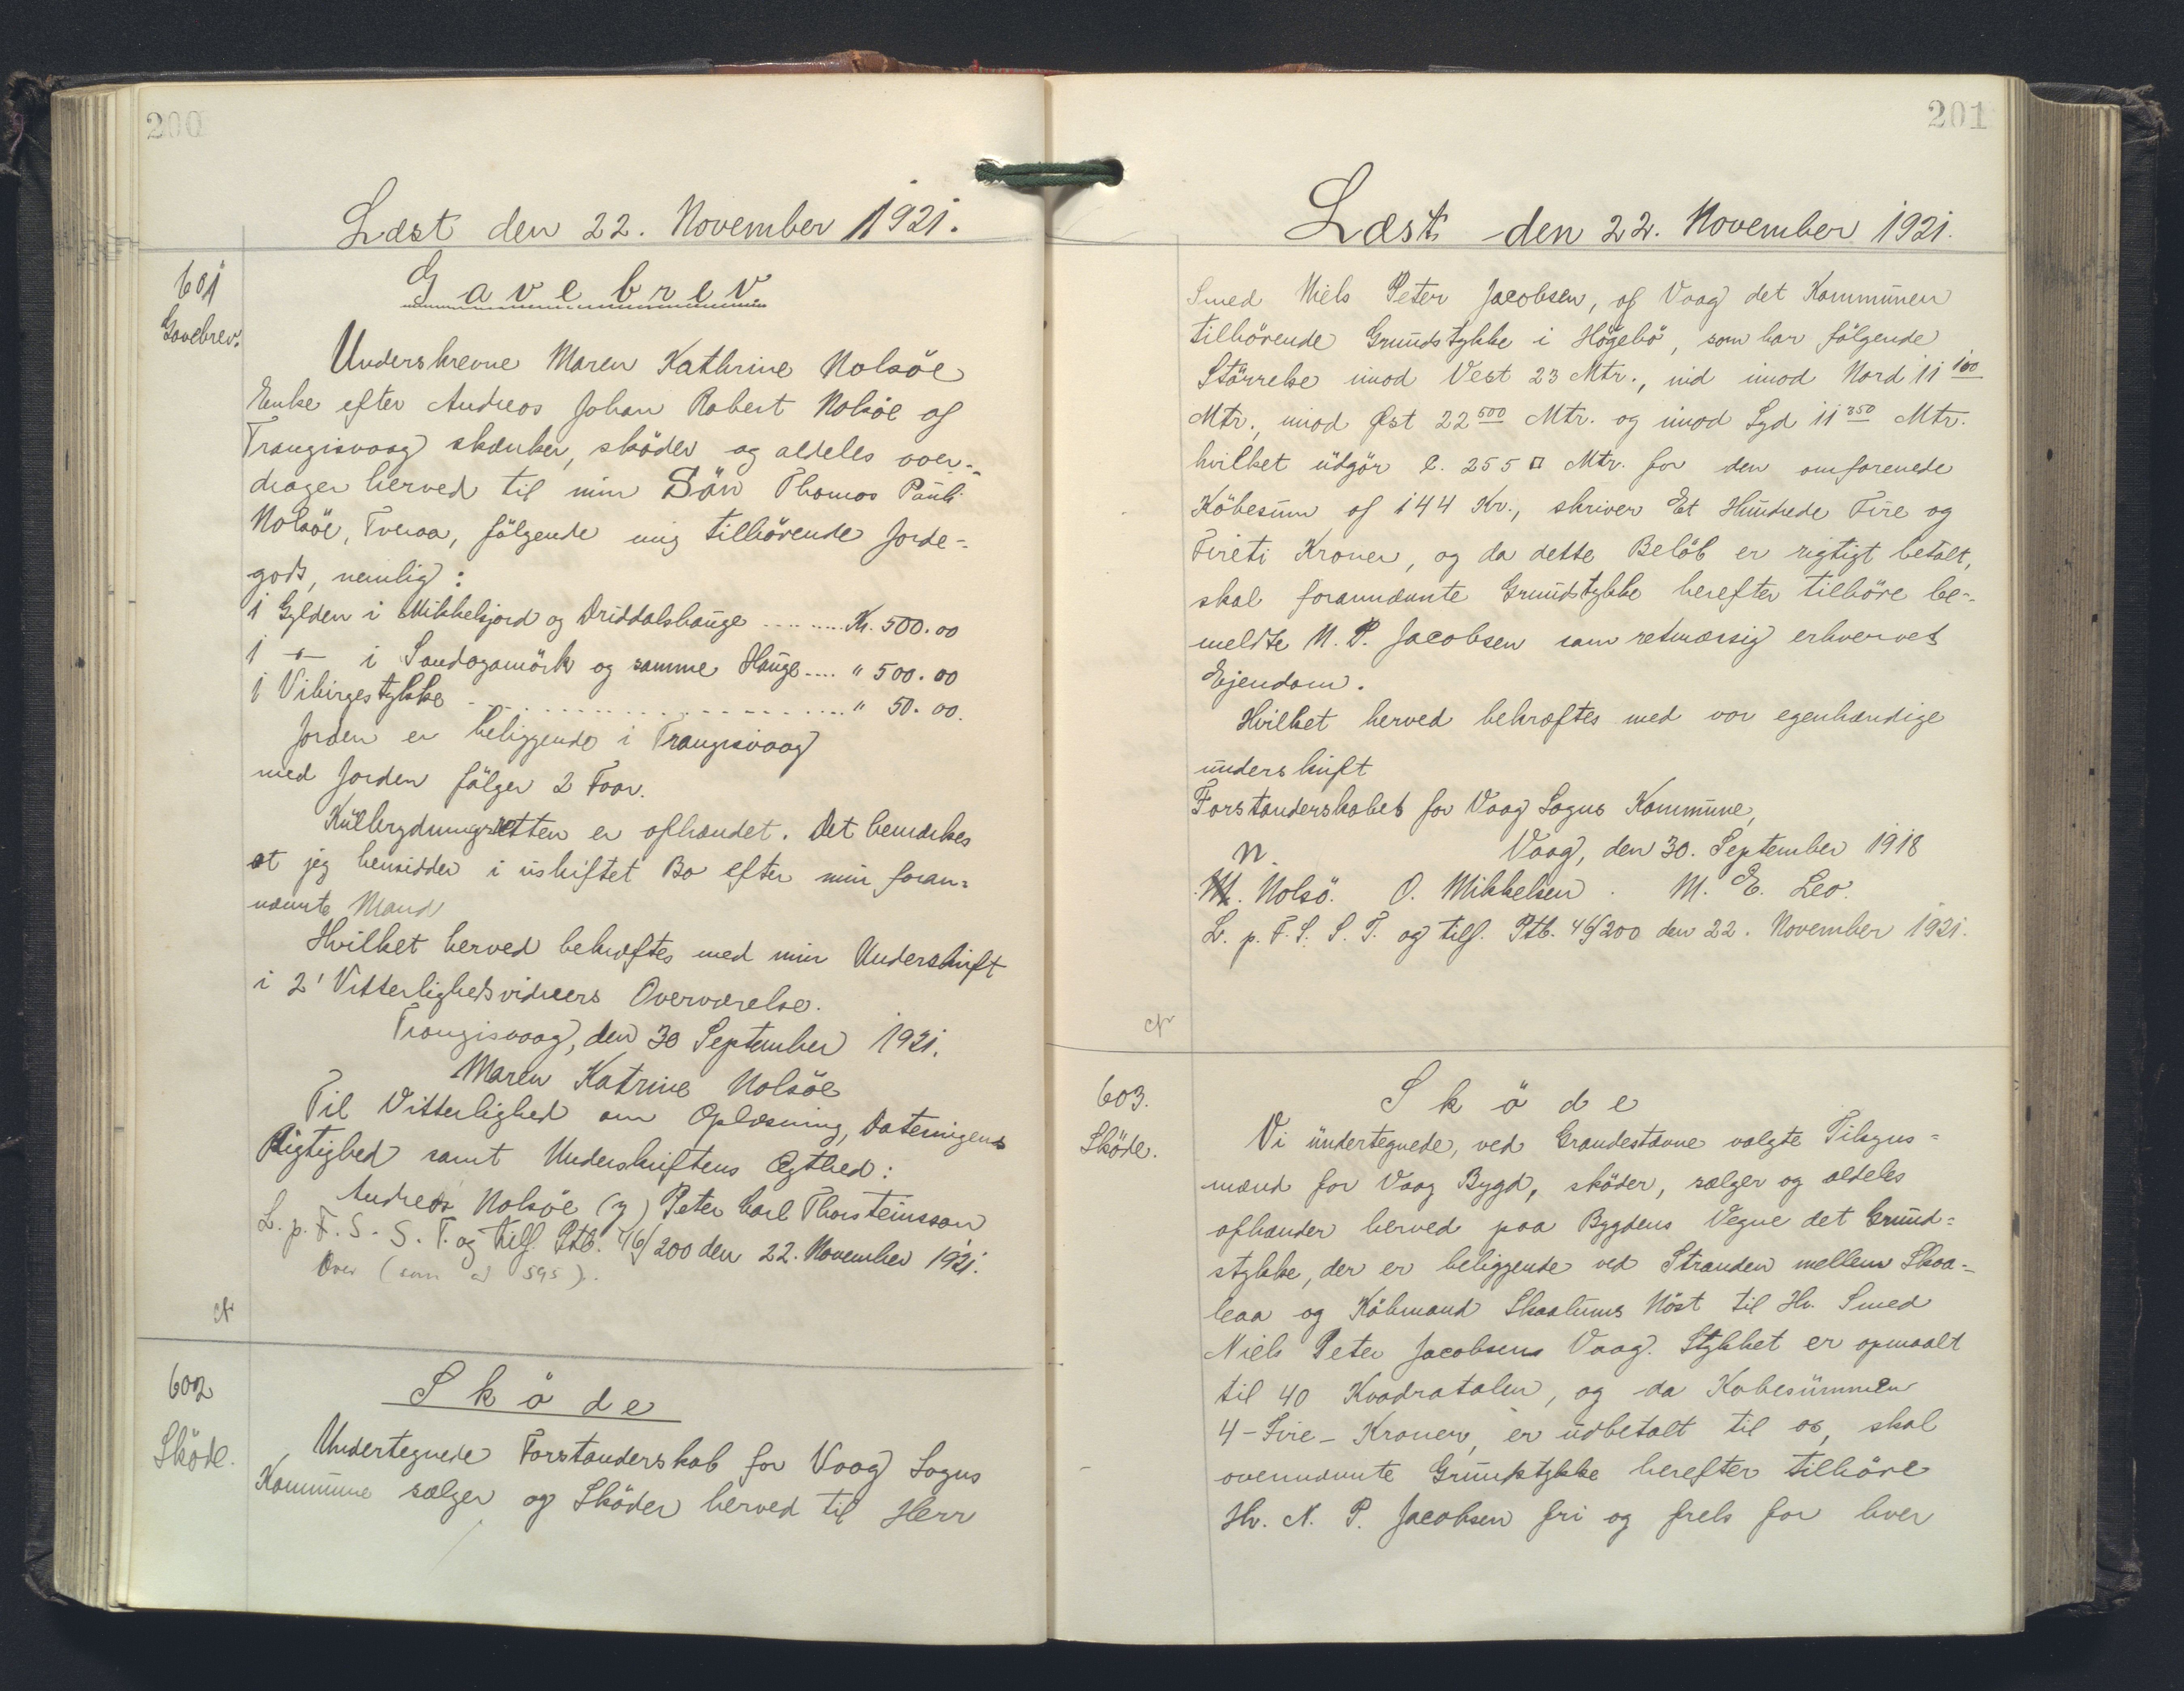 200
Læst den 22. November 1921.
601
Gavebrev.
Gavebrev
Underskrevne Maren Kathrine Nolsöe
Enke efter Andreas Johan Robert Nolsöe af
Trangisvaag skænker, sköder og aldeles over-
drager herved til min Sön Thomas Pauli
Nolsöe, Tveraa, fölgende mig tilhörende Jorde-
gods, nemlig:
1 Gylden i Mikkelsjord og Driddalshauge ......... Kr. 500.00
1 — i Sandogamörk og samme Hauge .... " 500.00
1 Vibirgestykke ........................ " 50.00.
Jorden er beliggende i Trangisvaag
med Jorden fölger 2 Foar.
Külbrydningsretten er afhændet. Det bemærkes
at jeg hensidder i üskiftet Bo efter min foran-
nævnte Mand
Hvilket herved bekræftes med min Underskrift
i 2' Vitterlighedsvidners Overværelse.
Trongisvaag, den 30 September 1921.
Maren Katrine Nolsöe
Til Vitterlighed om Oplæsning, Dateringens
Rigtighed samt Underskriftens Ægthed:
Andreas Nolsöe (z) Peter Carl Thorsteinsson
L. p. F. S. S. T. og tilf. Ptb. 46/200 den 22. November 1921.
Over (som ad 595).
cfr
602
Sköde.
Sköde
Undertegnede Forstanderskab for Vaag Sogns
Kommüne sælger og Sköder herved til Herr
201
Læst den 22. November 1921.
Smed Niels Peter Jacobsen, af Vaag det Kommünen
tilhörende Gründstykke i Högebö, som har fölgende
Störrelse imod Vest 23 Mtr., nid imod Nord 11 100
Mtr., imod Öst 22 500 Mtr. og imod Syd 11 350 Mtr.
hvilket üdgör c. 255 □ Mtr. for den omforenede
Köbesüm af 144 Kr., skriver Et Hündrede Fire og
Fireti Kroner, og da dette Belöb er rigtigt betalt,
skal forannævnte Gründstykke herefter tilhöre be-
meldte N. P. Jacobsen som retmæssig erhvervet
Ejendom.
Hvilket herved bekræftes med vor egenhændige
ünderskrift
Forstanderskabet for Vaag Sogns Kommüne,
Vaag, den 30. September 1918
N.
M. Nolsö. O. Mikkelsen. M. E. Leo.
L. p. F. S. S. T. og tilf. Ptb. 46/200 den 22. November 1921.
cfr
603.
Sköde.
Sköde
Vi ündertegnede, ved Grandestævne valgte Tilsyns-
mænd for Vaag Bygd, sköder, sælger og aldeles
afhænder herved paa Bygdens Vegne det Gründ-
stykke, der er beliggende ved Stranden mellem Skoa-
leaa og Köbmand Skaalums Nöst til Hr. Smed
Niels Peter Jacobsens Vaag. Stykket er opmaalt
til 40 Kvadratalen, og da Kobesümmen
4-Fire- Kroner, er üdbetalt til os, skal
ovennævnte Gründstykke herefter tilhöre
Hr. N. P. Jacobsen fri og frels for hver